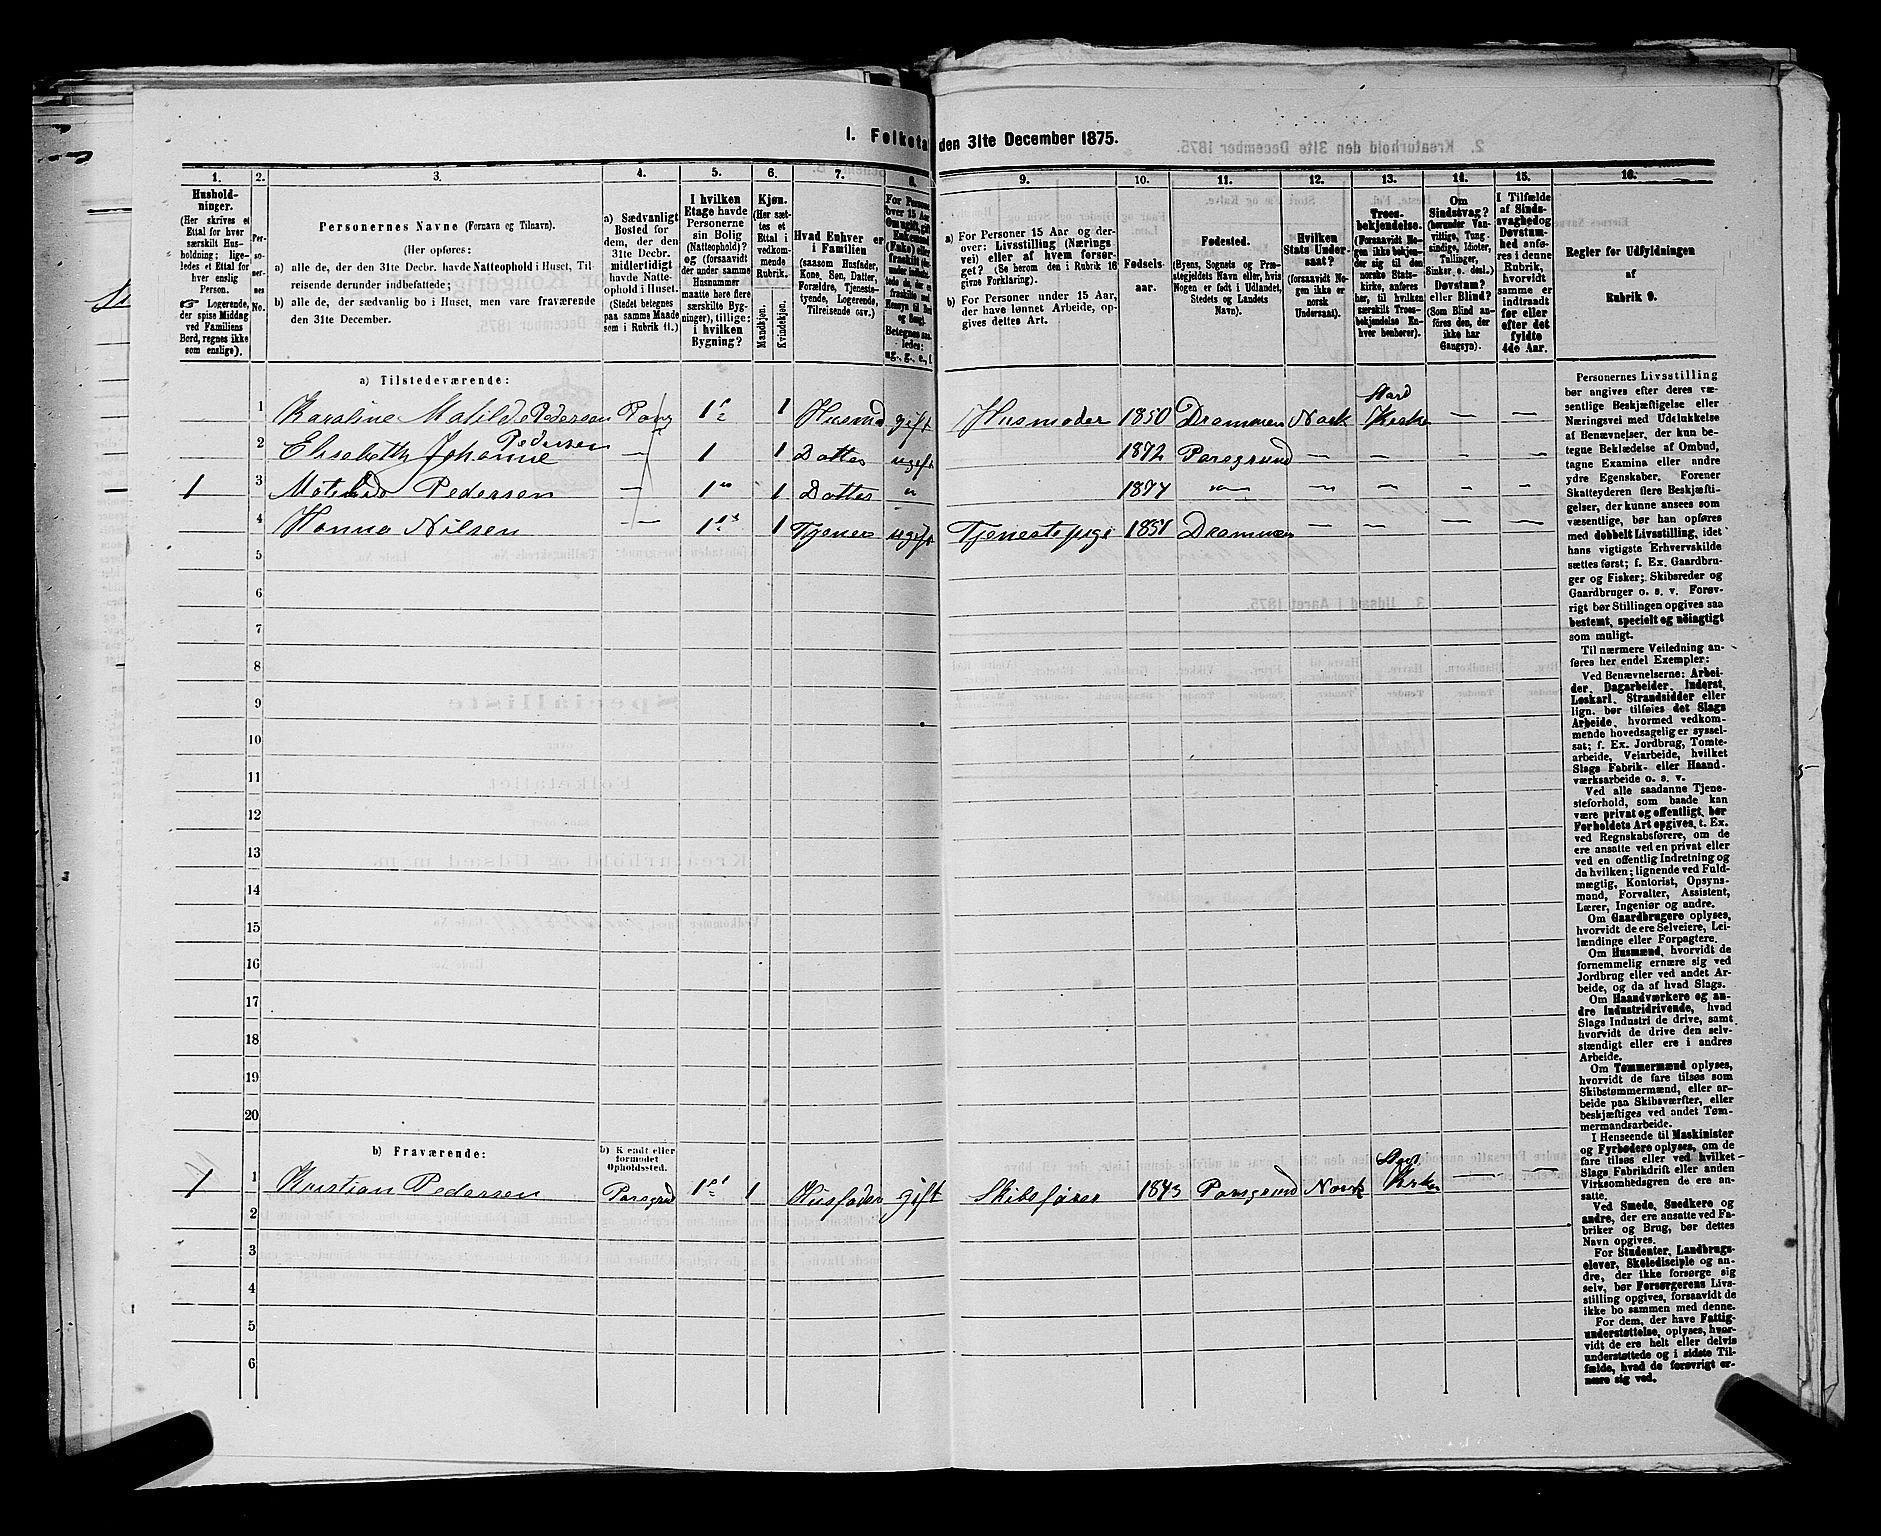 1. Folketal den 31te December 1875.
1.
2.
3.
4.
5.
6.
7.
8.
9.
10.
11.
12.
13.
14.
15.
16.
Hushold-
ninger.
(Her skrives et
Ettal for hver
særskilt Hus-
holdning; lige-
ledes et Ettal for
hver enslig
Person.
☞ Logerende,
der spise Middag
ved Familiens
Bord, regnes ikke
som enslige).
Per-
so-
ner-
nes
No.
Personernes Navne (Fornavn og Tilnavn).
(Her opføres:
a) alle de, der den 31te Decbr. havde Natteophold i Huset, Til-
reisende derunder indbefattede;
b) alle de, der sædvanlig bo i Huset, men vare fraværende
den 31te December.
a) Sædvanligt
Bosted for
dem, der den
31te Decbr.
midlertidigt
havde Natte-
ophold i Huset.
(Stedet betegnes
paa samme Maade
som i Rubrik 11.)
I hvilken
Etage havde
Personerne
sin Bolig
(Natteophold)?
og (forsaavidt
der under samme
Husnummer
maatte høre flere
særskilte Byg-
ninger), tillige:
i hvilken
Bygning?
Kjøn.
(Her sæt-
tes et
Ettal i
vedkom-
mende
Rubrik.
Mandkjøn.
Kvindekjøn.
Hvad Enhver er
i Familien
(saasom Husfader,
Kone, Søn, Datter,
Forældre, Tjeneste-
tyende, Logerende,
Tilreisende osv.)
a) For Personer 15 Aar og der-
over: Livsstilling (Nærings
vei) eller af hvem forsør-
get? (Se herom den i Rubrik 16
givne Forklaring).
b) For Personer under 15 Aar,
der have lønnet Arbeide, op-
gives dettes Art.
Fødsels-
aar.
Fødested.
(Byens, Sognets og Præ-
stegjeldets Navn eller, hvis
Nogen er født i Udlandet,
Stedets og Landets
Navn).
Hvilken
Stats Under-
saat?
(forsaavidt No-
gen ikke er
norsk
Undersaat).
Troes-
bekjendelse.
(Forsaavidt No-
gen ikke bekjen-
der sig til den
norske Stats-
kirke, anføres
her, til hvilken
særskilt Troes-
bekjendelse En-
hver henhører).
Om
Sindssvag?
(herunder Van-
vittige, Tung-
sindige, Idioter,
Tullinger,
Sinker o. desl.)
Døvstum?
eller Blind?
(Som Blind an-
føres den, der
ikke har
Gangsyn).
I Tilfælde
af Sinds-
svaghed og
Døvstum-
hed anfø-
res i denne
Rubrik,
hvorvidt
samme er
indtraadt
før eller
efter det
fyldte
4de Aar.
Regler for Udfyldningen
af
Rubrik 9.
a) Tilstedeværende:
1 Karoline Matilde Pedersen 1 1 Husmd gift Husmoder 1850 Drammen Norsk Kirke — —
2 Elisabeth Johanne Pedersen — 1 1 Datter ugift 1872 Porsgrund — — — —
1 3 Matilde Pedersen — 1 1 Datter " 1874 — — — — —
4 Hanna Nilsen — 1 1 Tjener ugift Tjenestepige 1851 Drammen — — — —
5
6
7
8
9
10
11
12
13
14
15
16
17
18
19
20
b) Fraværende:
b) Kjendt eller
formodet
Opholdssted.
1 1 Kristian Pedersen 1 1 Husfader gift Skibsfører 1843 Porsgrund Norsk Kirke — —
2
3
4
5
6
Personernes Livsstilling
bør angives efter deres væ-
sentlige Beskjæftigelse eller
Næringsvei med Udelukkelse
af Benævnelser, der kun be-
tegne Beklædelse af Ombud,
tagne Examina eller andre
ydre Egenskaber. Forener
Skatteyderen flere Beskjæfti-
gelser, der kunne ansees som
væsentlige, bør han opføres
med dobbelt Livsstilling, idet
hans vigtigste Erhvervskilde
sættes først; f. Ex. Gaardbru-
ger og Fisker; Skibsreder og
Gaardbruger o. s. v. Forøv-
rigt bør Stillingen opgives saa
bestemt, specielt og nøiagtigt
som muligt.
Til nærmere Veiledning an-
føres her endel Exempler:
Ved Benævnelserne: Arbei-
der, Dagarbeider, Inderst,
Løskarl, Strandsidder eller
lign. bør tilføies det Slags
Arbeide, hvormed vedkom-
mende hovedsagelig er syssel-
sat; f. Ex. Jordbrug, Tomte-
arbeide, Veiarbeide, hvilket
Slags Fabrik- eller Haand-
værksarbeide o. s. v.
Ved alle saadanne Tjene-
steforhold, som baade kan
være privat og offentligt, bør
Forholdets Art opgives, t. Ex.
ved Regnskabsførere, om de
ere ansatte ved en privat eller
ved en offentlig Indretning og
da hvilken; lignende ved Fuld-
mægtig, Kontorist, Opsyns-
mand, Forvalter, Assistent,
Lærer, Ingeniør og andre.
Om Gaardbrugere oplyses,
hvorvidt de ere Selveiere, Lei-
lændinge eller Forpagtere.
Om Husmænd, hvorvidt de
fornemmelig ernære sig ved
Jordbrug eller ved andet Ar-
beide, og da af hvad Slags.
Om Haandværkere og an-
dre Industridrivende, hvad
Slags Industri de drive, samt
hvorvidt de drive den selv-
stændigt eller ere i andres
Arbeide.
Om Tømmermænd oplyses,
hvorvidt de fare tilsøs som
Skibstømmermænd, eller ar-
beide paa Skibsværfter, eller
beskjæftiges ved andet Tøm-
mermandsarbeide.
I Henseende til Maskinister
og Fyrbødere oplyses, om de
fare tilsøs eller ved hvilket-
Slags Fabrikdrift eller anden
Virksomhedsgren de ere an-
satte.
Ved Smede, Snedkere og
andre, der ere ansatte ved Fa-
briker og Brug, bør dettes
Navn opgives.
For Studenter, Landbrugs-
elever, Skoledisciple og an-
dre, der ikke forsørge sig
selv, bør Forsørgerens Livs-
stilling opgives, forsaavidt de
ikke bo sammen med denne.
For dem, der have Fattig-
understøttelse, oplyses, hvor-
vidt de ere helt eller delvis
understøttede og i sidste Til-
fælde, hvad de forøvrigt er-
nære sig ved.